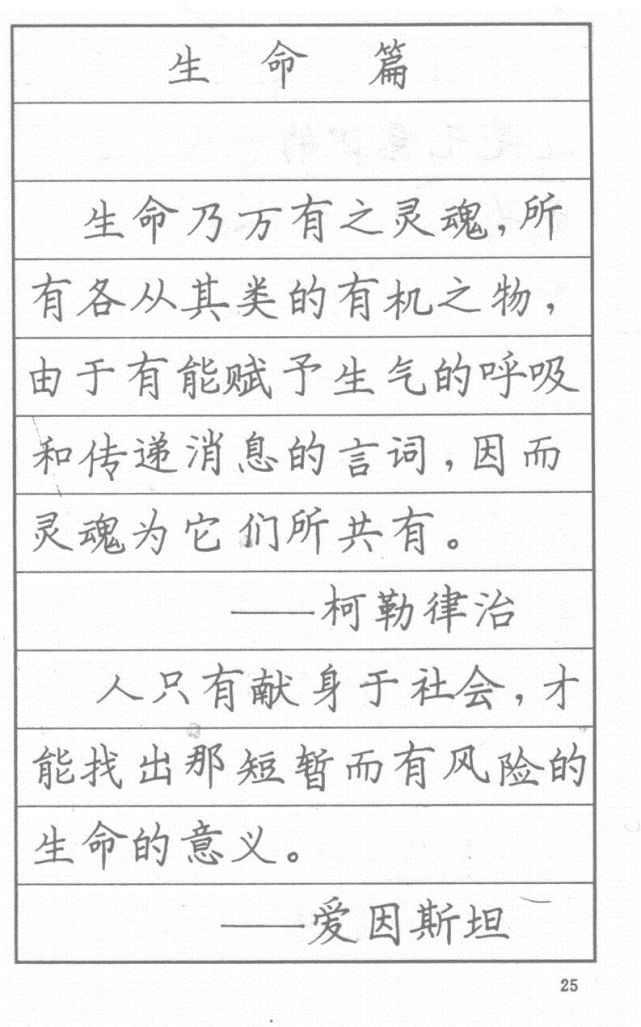 生 命 篇
生命乃万有之灵魂,所
有各从其类的有机之物,
由于有能赋予生气的呼吸
和传递消息的言词,因而
灵魂为它们所共有。
——柯勒律治
人只有献身于社会,才
能找出那短暂而有风险的
生命的意义。
——爱因斯坦
25